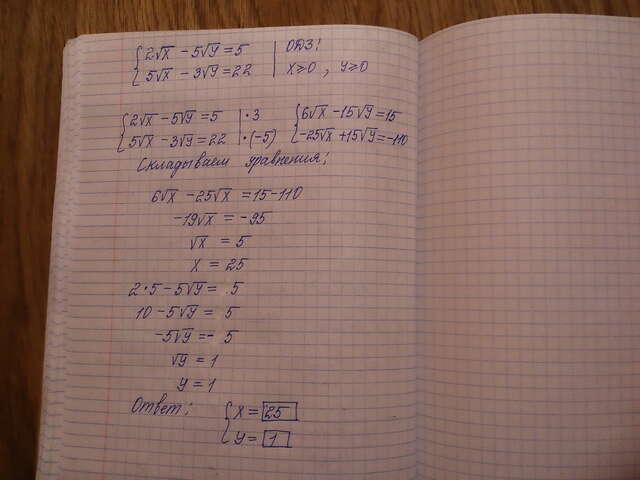 {2√x - 5√y = 5 | ОДЗ!
{5√x - 3√y = 22 | x ≥ 0 , y ≥ 0
{2√x - 5√y = 5 | · 3 {6√x - 15√y = 15
{5√x - 3√y = 22 | · (-5) {-25√x + 15√y = -110
Складываем уравнения:
6√x - 25√x = 15 - 110
-19√x = -95
√x = 5
x = 25
2 · 5 - 5√y = 5
10 - 5√y = 5
-5√y = - 5
√y = 1
y = 1
Ответ: {x = 25
{y = 1